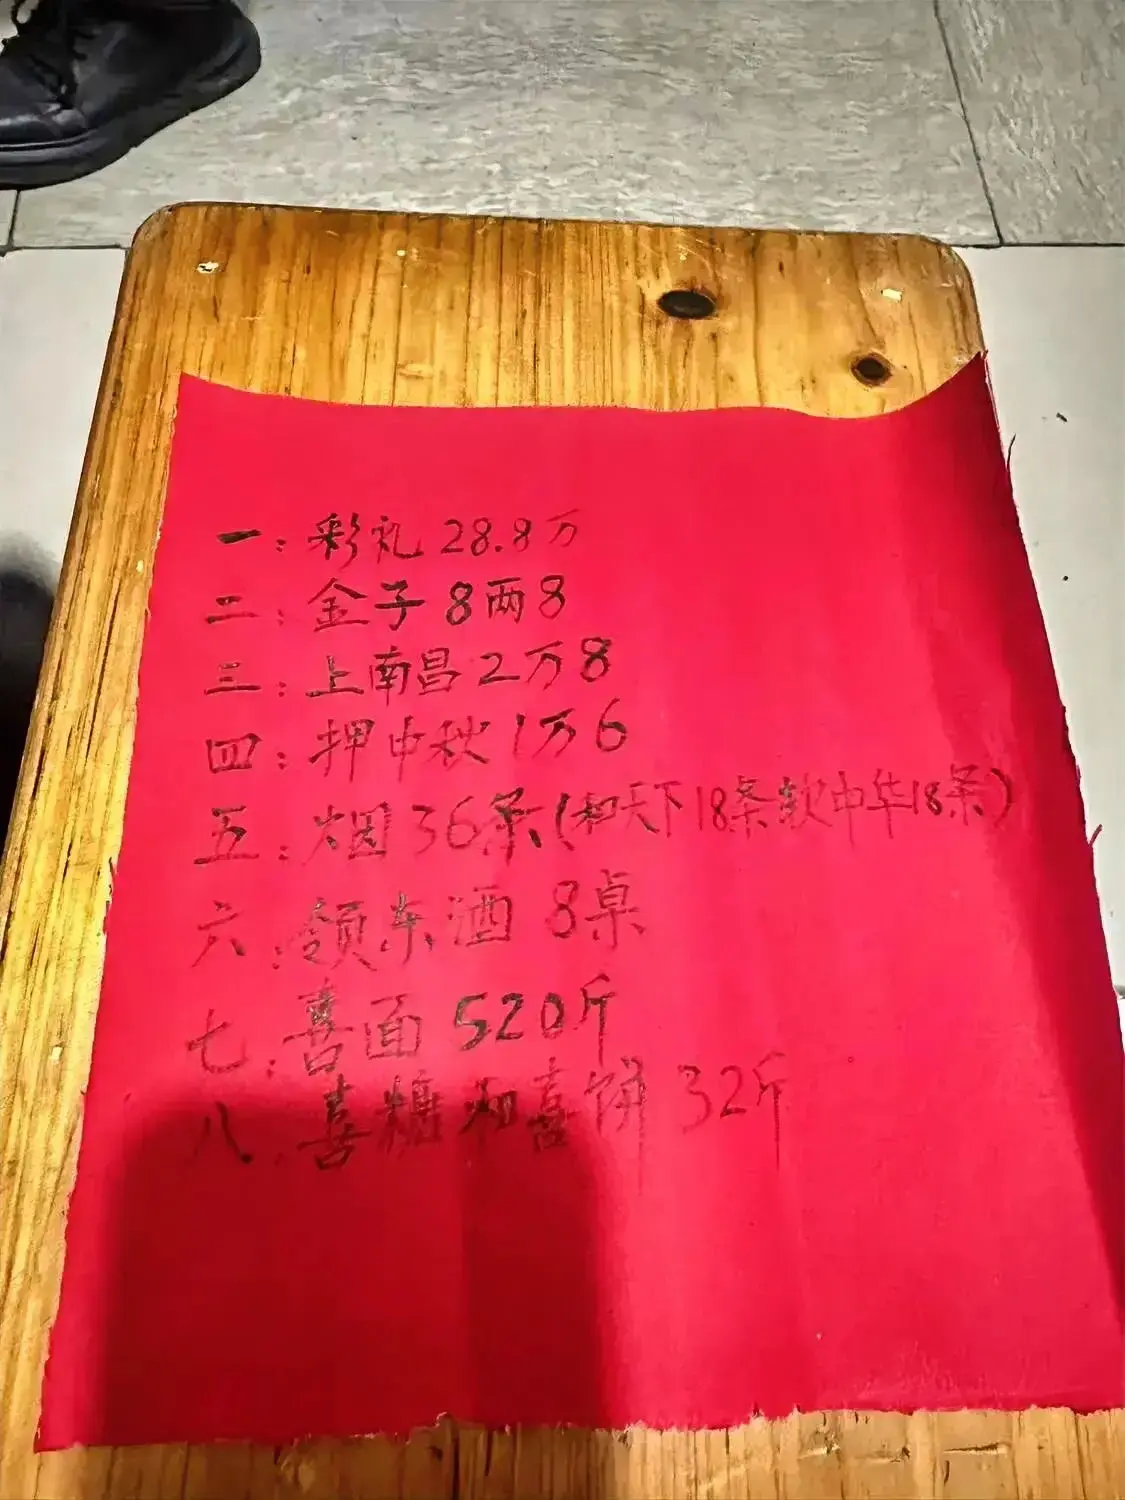 一：彩礼 28.8万
二：金子 8两8
三：上南昌2万8
四：押中秋1万6
五：烟36条(和天下18条软中华18条)
六：领东酒 8桌
七：喜面 520斤
八：喜糖和喜饼 32斤